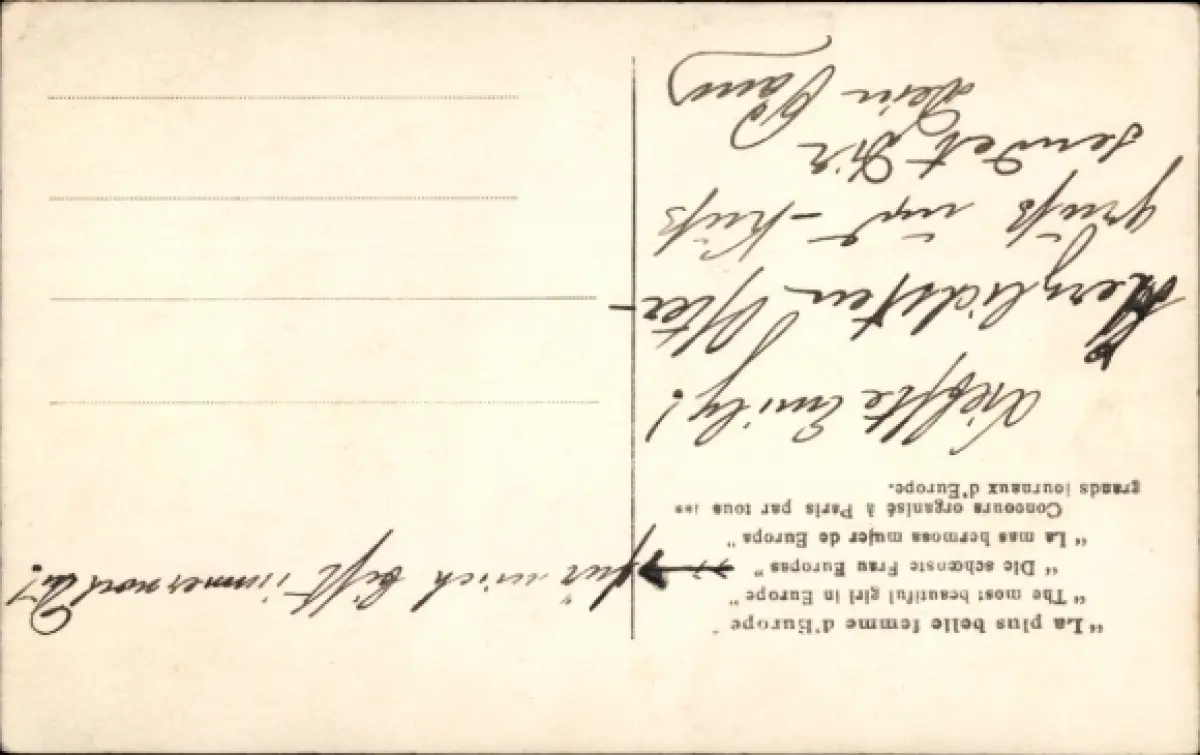 "La plus belle femme d'Europe"
"The most beautiful girl in Europe"
"Die schœnste Frau Europas"
"La mas hermosa mujer de Europa"
Concours organisé à Paris par tous les
grands journaux d'Europe.
Liebste Emily!
Herzlichsten Oster-
gruß und -kuß
sendet Dir
dein
für mich bist immernoch Du!